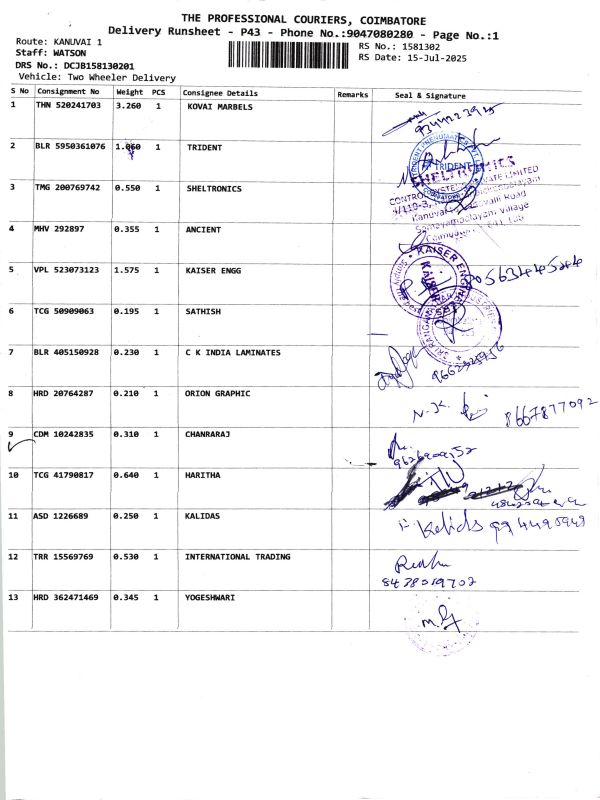 THE PROFESSIONAL COURIERS, COIMBATORE
Delivery Runsheet - P43 - Phone No.:9047080280 - Page No.:1
Route: KANUVAI 1
Staff: WATSON
DRS No.: DCJB158130201
Vehicle: Two Wheeler Delivery
RS No.: 1581302
RS Date: 15-Jul-2025
S No Consignment No Weight PCS Consignee Details Remarks Seal & Signature
1 THN 520241703 3.260 1 KOVAI MARBELS
2 BLR 5950361076 1.060 1 TRIDENT
TRIDENT
3 TMG 200769742 0.550 1 SHELTRONICS
SHELTRONICS
4 MHV 292897 0.355 1 ANCIENT
5 VPL 523073123 1.575 1 KAISER ENGG
KAISER ENGG
6 TCG 50909063 0.195 1 SATHISH
7 BLR 405150928 0.230 1 C K INDIA LAMINATES
8 HRD 20764287 0.210 1 ORION GRAPHIC
8667877092
9 CDM 10242835 0.310 1 CHANRARAJ
10 TCG 41790817 0.640 1 HARITHA
11 ASD 1226689 0.250 1 KALIDAS
Kalids
12 TRR 15569769 0.530 1 INTERNATIONAL TRADING
8438019702
13 HRD 362471469 0.345 1 YOGESHWARI